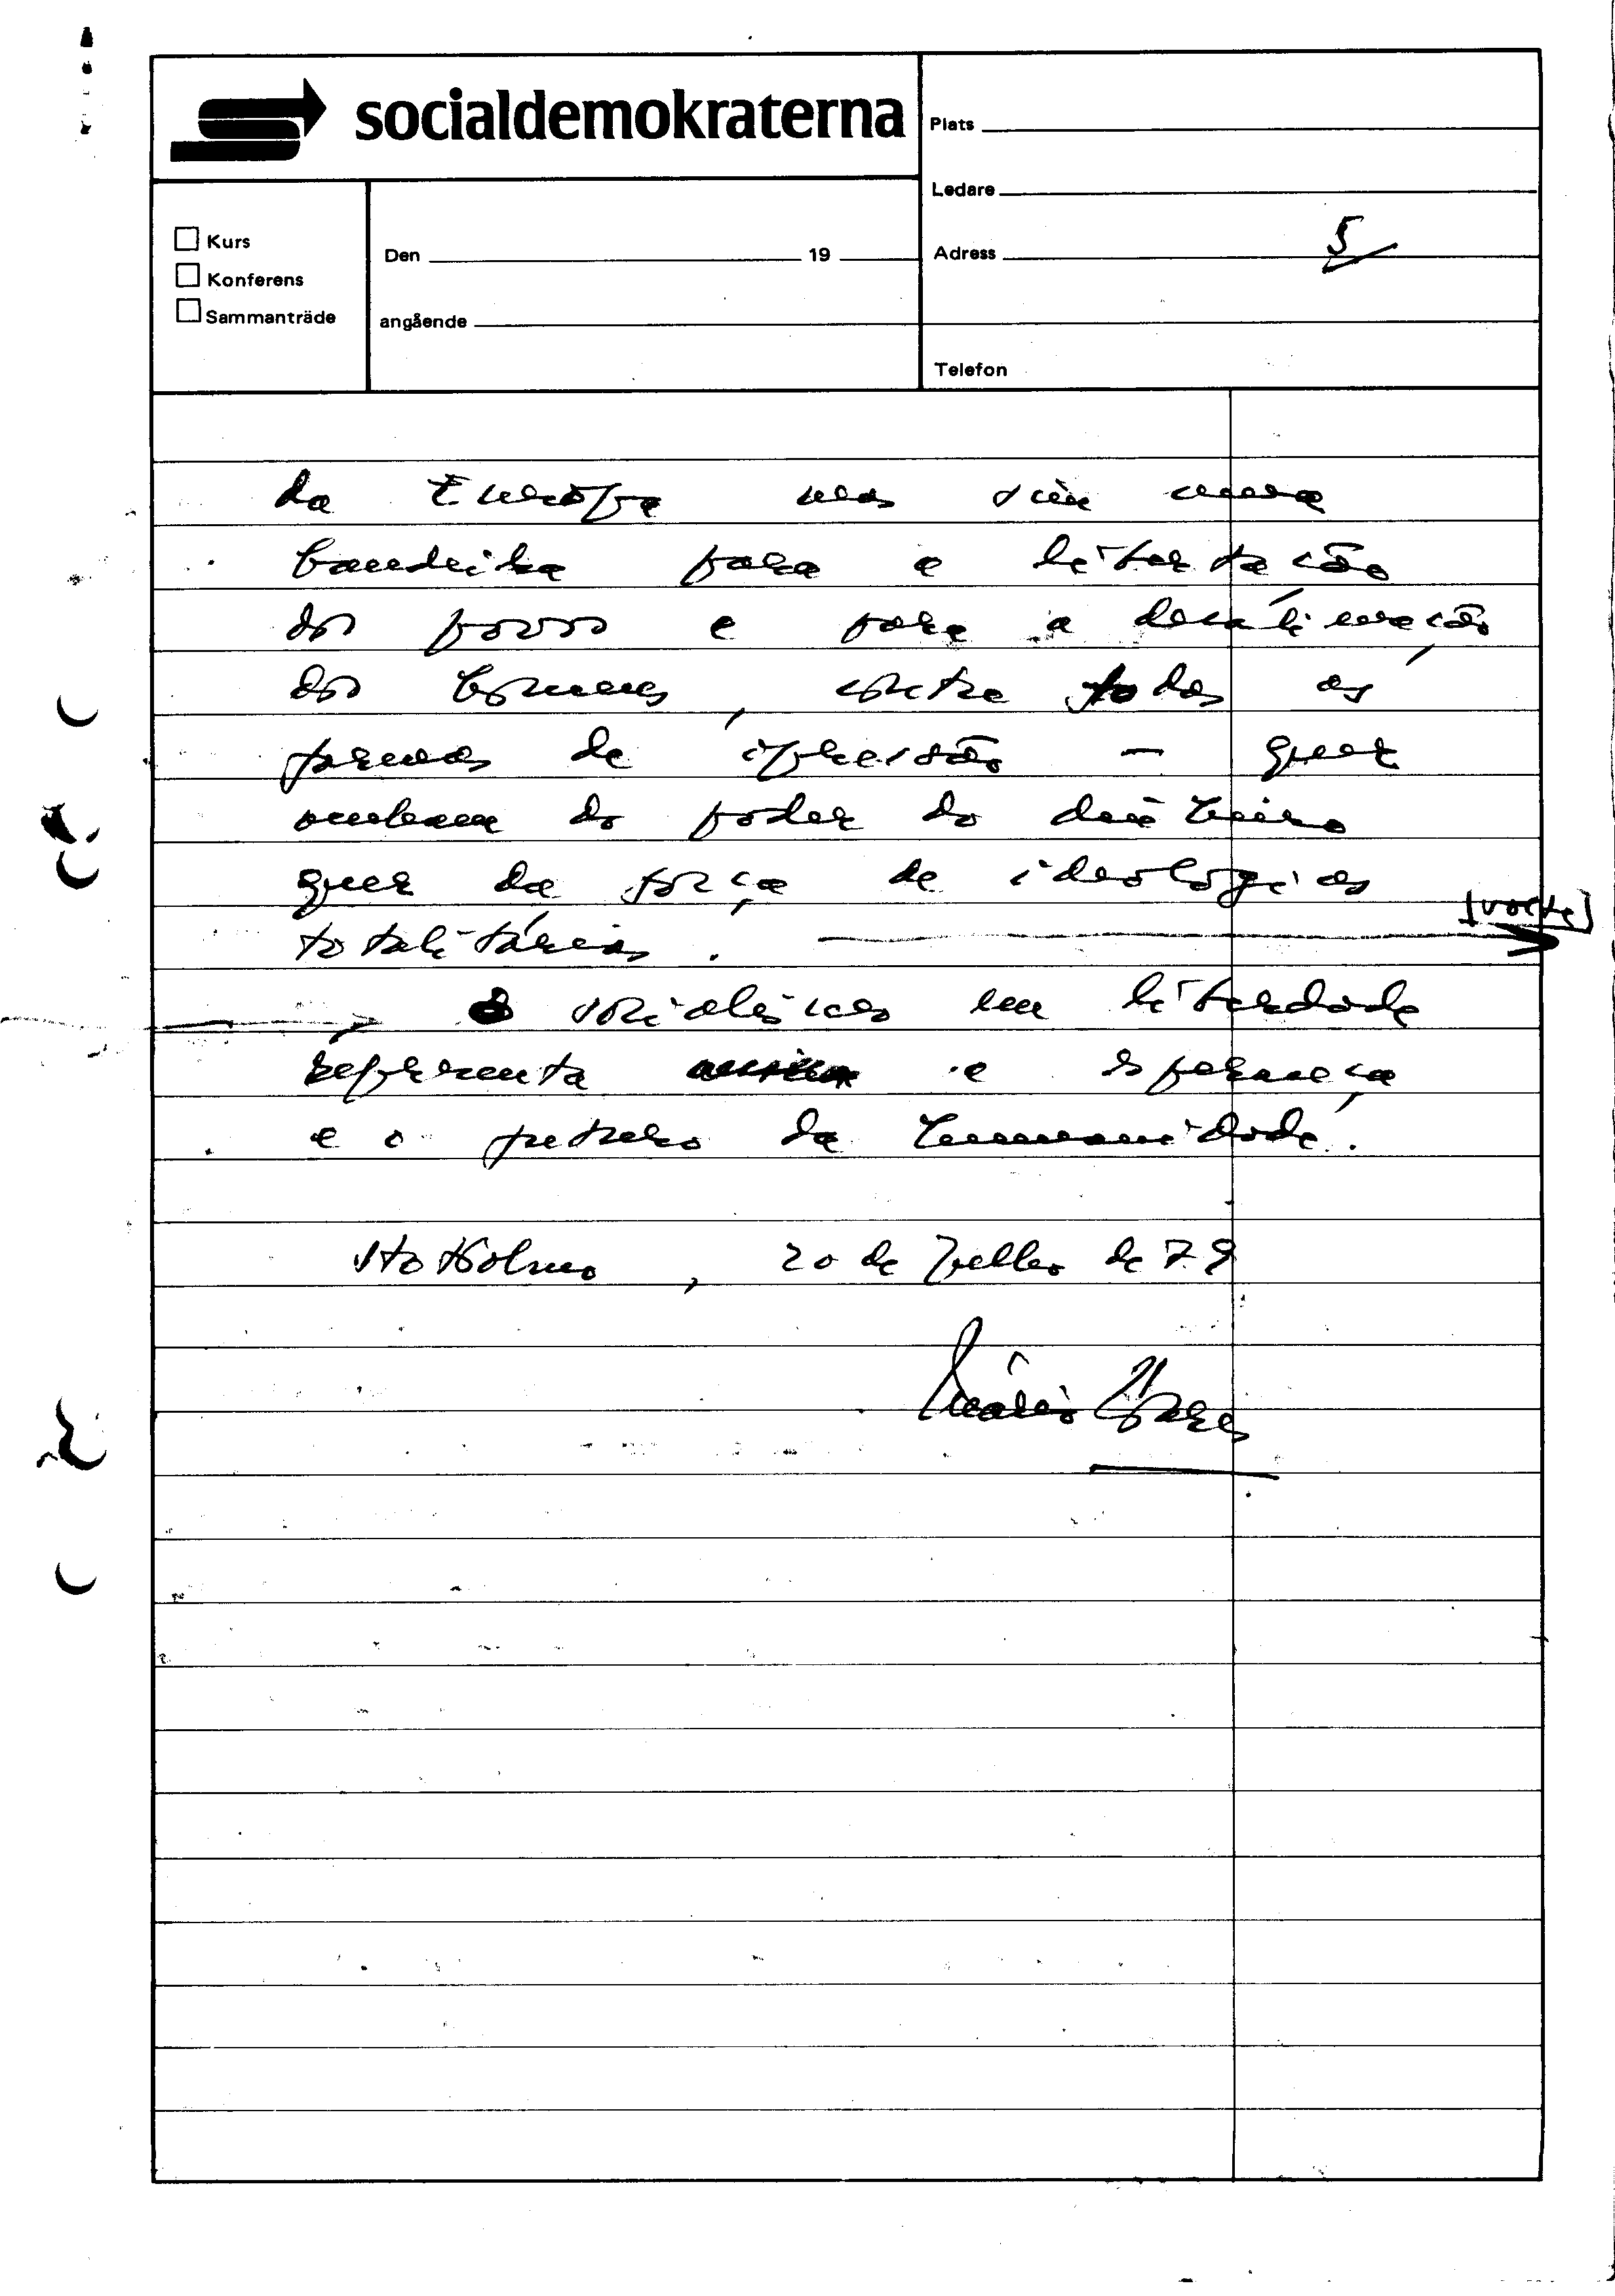 socialdemokraterna
Plats
Ledare
Kurs
Konferens
Sammanträde
Den 19
angående
Adress 5
Telefon
da Europa mas sim uma
bandeira para a libertação
dos povos e para a
dos homens, contra todas as
formas de opressão — quer
do poder do dinheiro
quer da força de ideologias
totalitárias.
[volte]
O socialismo em liberdade
representa a esperança
e o futuro da humanidade.
Stokolmo, 20 de Julho de 79
Mário Soares